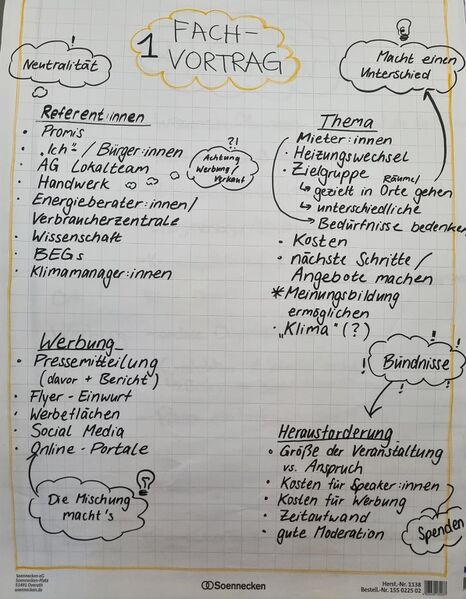 1 FACH-
VORTRAG
!
Neutralität
Macht einen
Unterschied
Referent:innen
• Promis
• „Ich" / Bürger:innen
• AG Lokalteam
• Handwerk
• Energieberater:innen/
Verbraucherzentrale
• Wissenschaft
• BEGs
• Klimamanager:innen
?!
Achtung
Werbung/
Verkauf
Thema
Mieter:innen
• Heizungswechsel
• Zielgruppe Räume/
↳ gezielt in Orte gehen
↳ unterschiedliche
Bedürfnisse bedenken
• Kosten
• nächste Schritte/
Angebote machen
* Meinungsbildung
ermöglichen
• „Klima" (?)
Werbung
• Pressemitteilung
(davor + Bericht)
• Flyer-Einwurf
• Werbeflächen
• Social Media
• Online-Portale
Die Mischung
macht's
! ! !
Bündnisse
Herausforderung
• Größe der Veranstaltung
vs. Anspruch
• Kosten für Speaker:innen
• Kosten für Werbung
• Zeitaufwand
• gute Moderation
Spenden
Soennecken eG
Soennecken-Platz
51491 Overath
soennecken.de
Soennecken
Herst.-Nr. 1138
Bestell-Nr. 155 0225 02